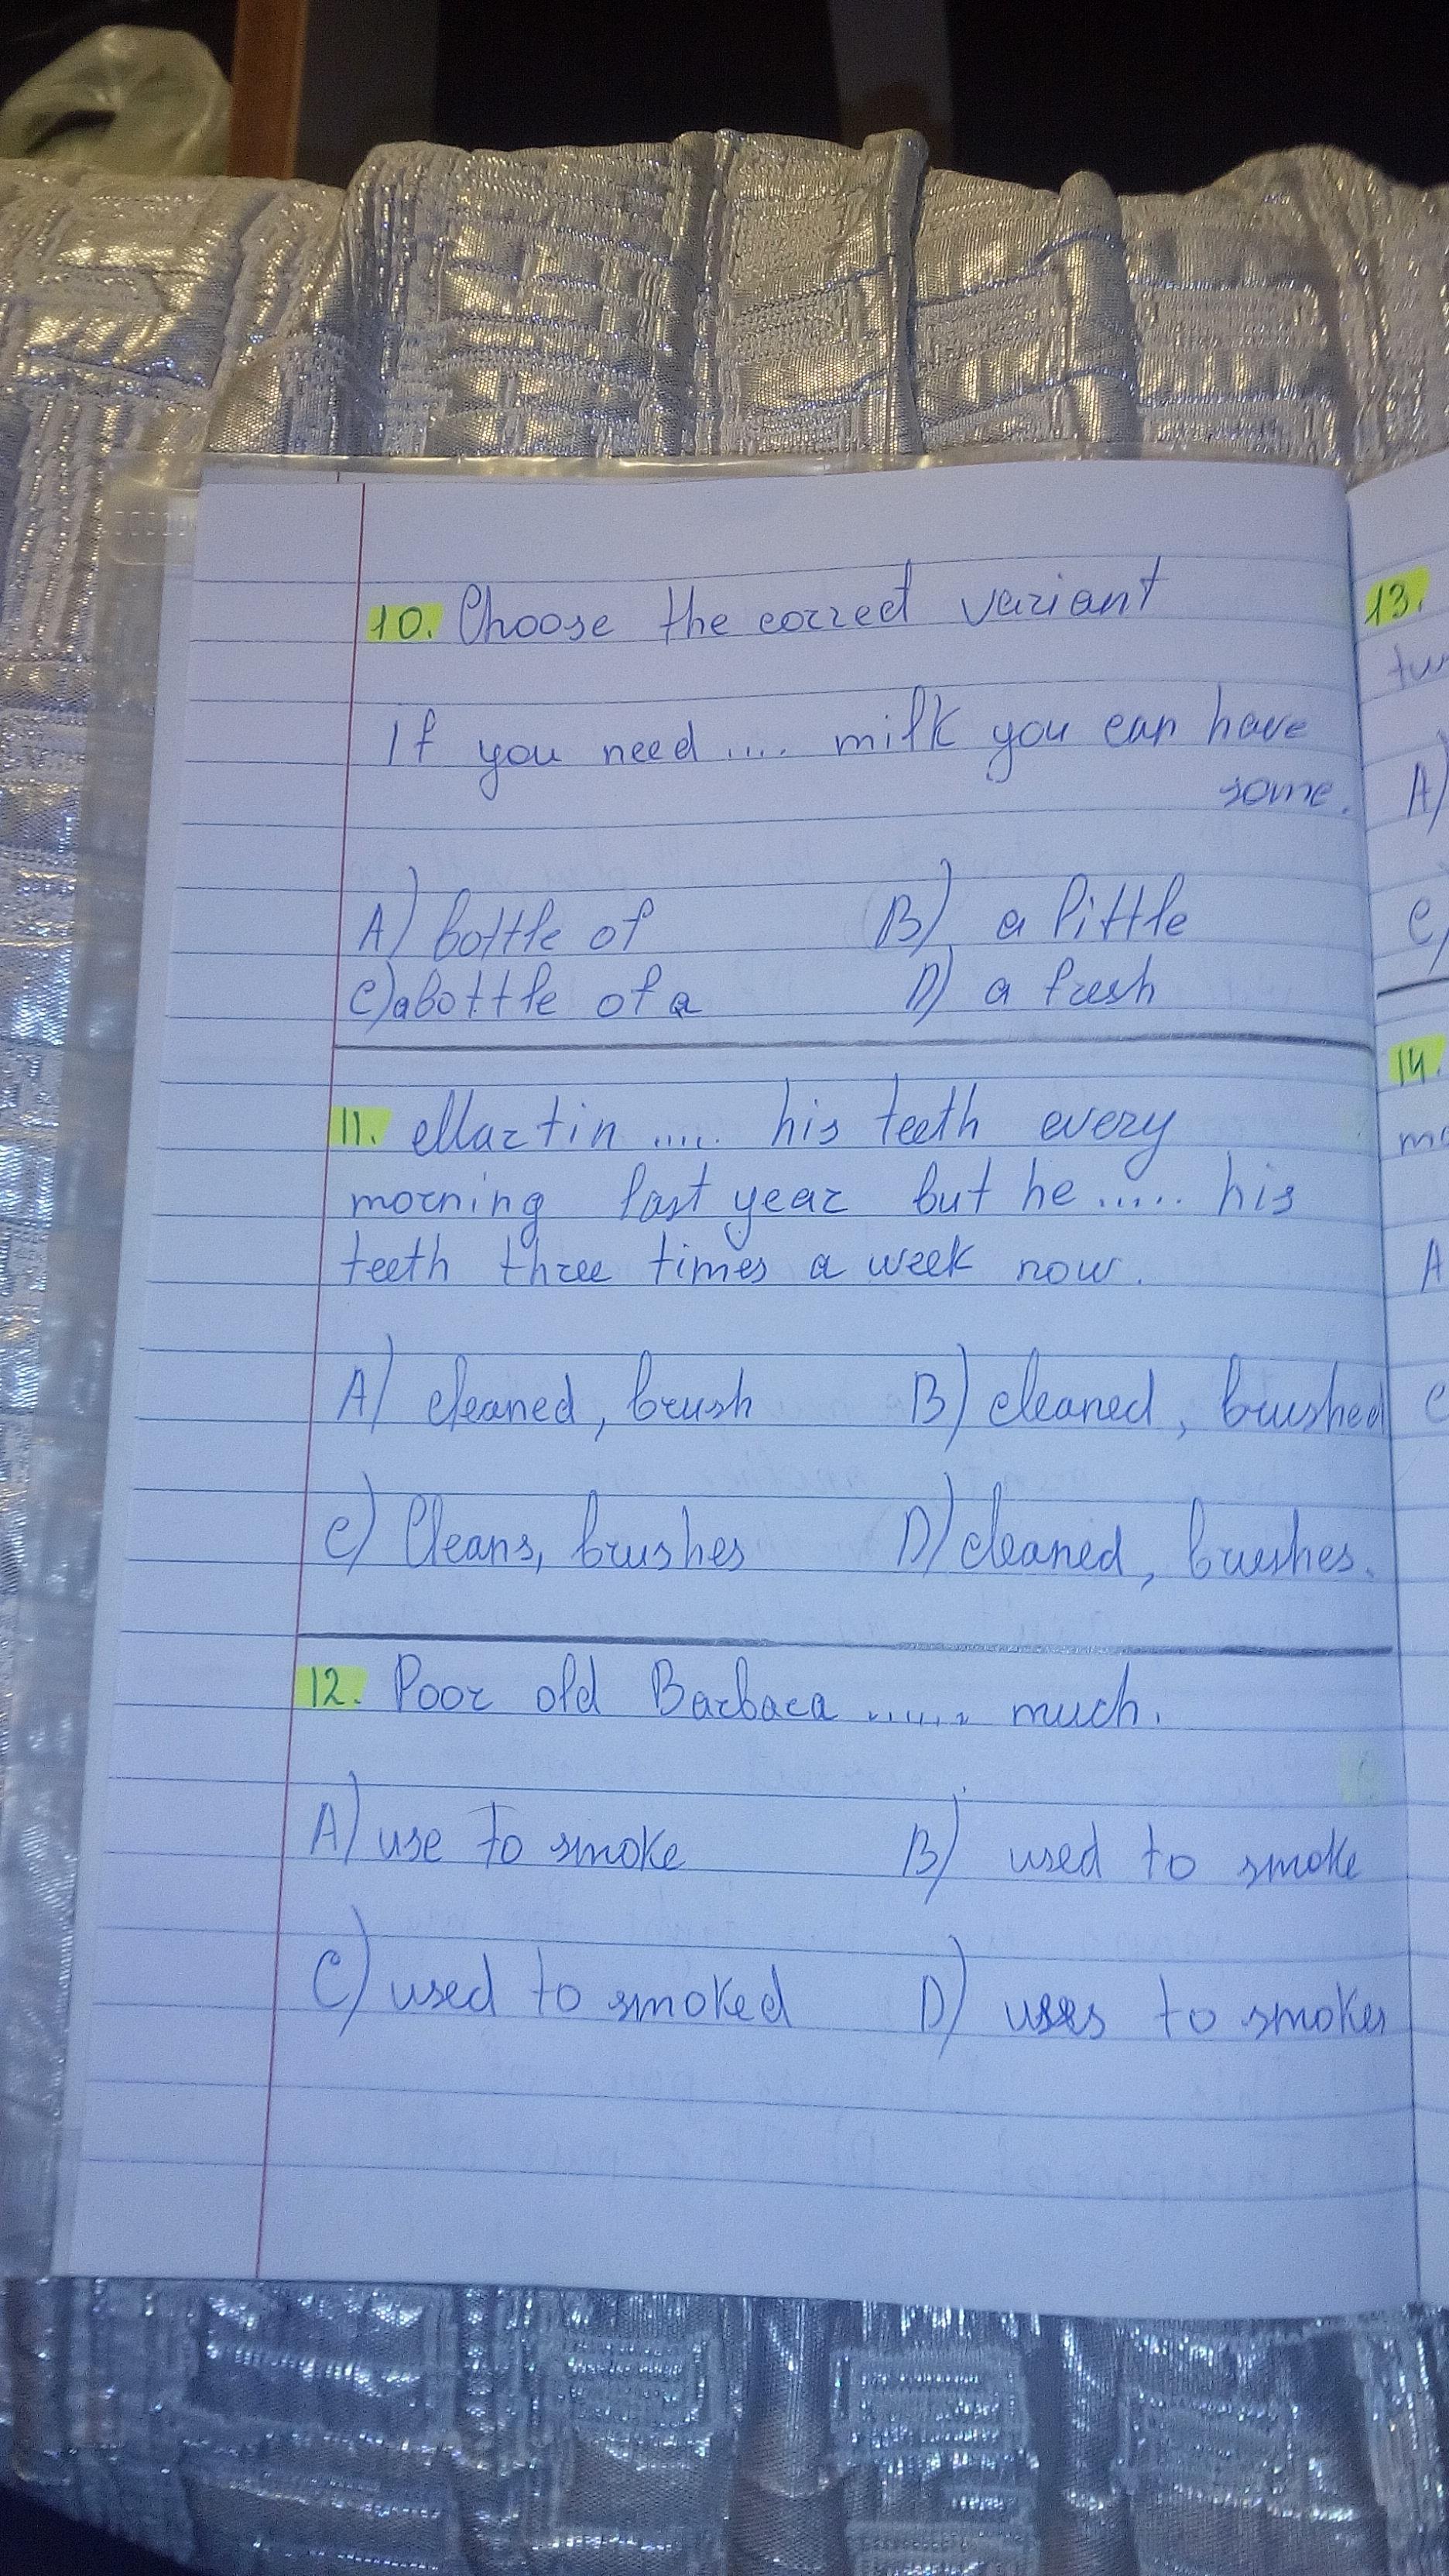 10. Choose the correct variant
If you need .... milk you can have
some.
A) bottle of B) a little
C) a bottle of a D) a fresh
11. Martin ..... his teeth every
morning last year but he ..... his
teeth three times a week now.
A) cleaned, brush B) cleaned, brushed
C) Cleans, brushes D) cleaned, brushes.
12. Poor old Barbara ...... much.
A) use to smoke B) used to smoke
C) used to smoked D) uses to smokes
13.
A)
C)
14.
A
C